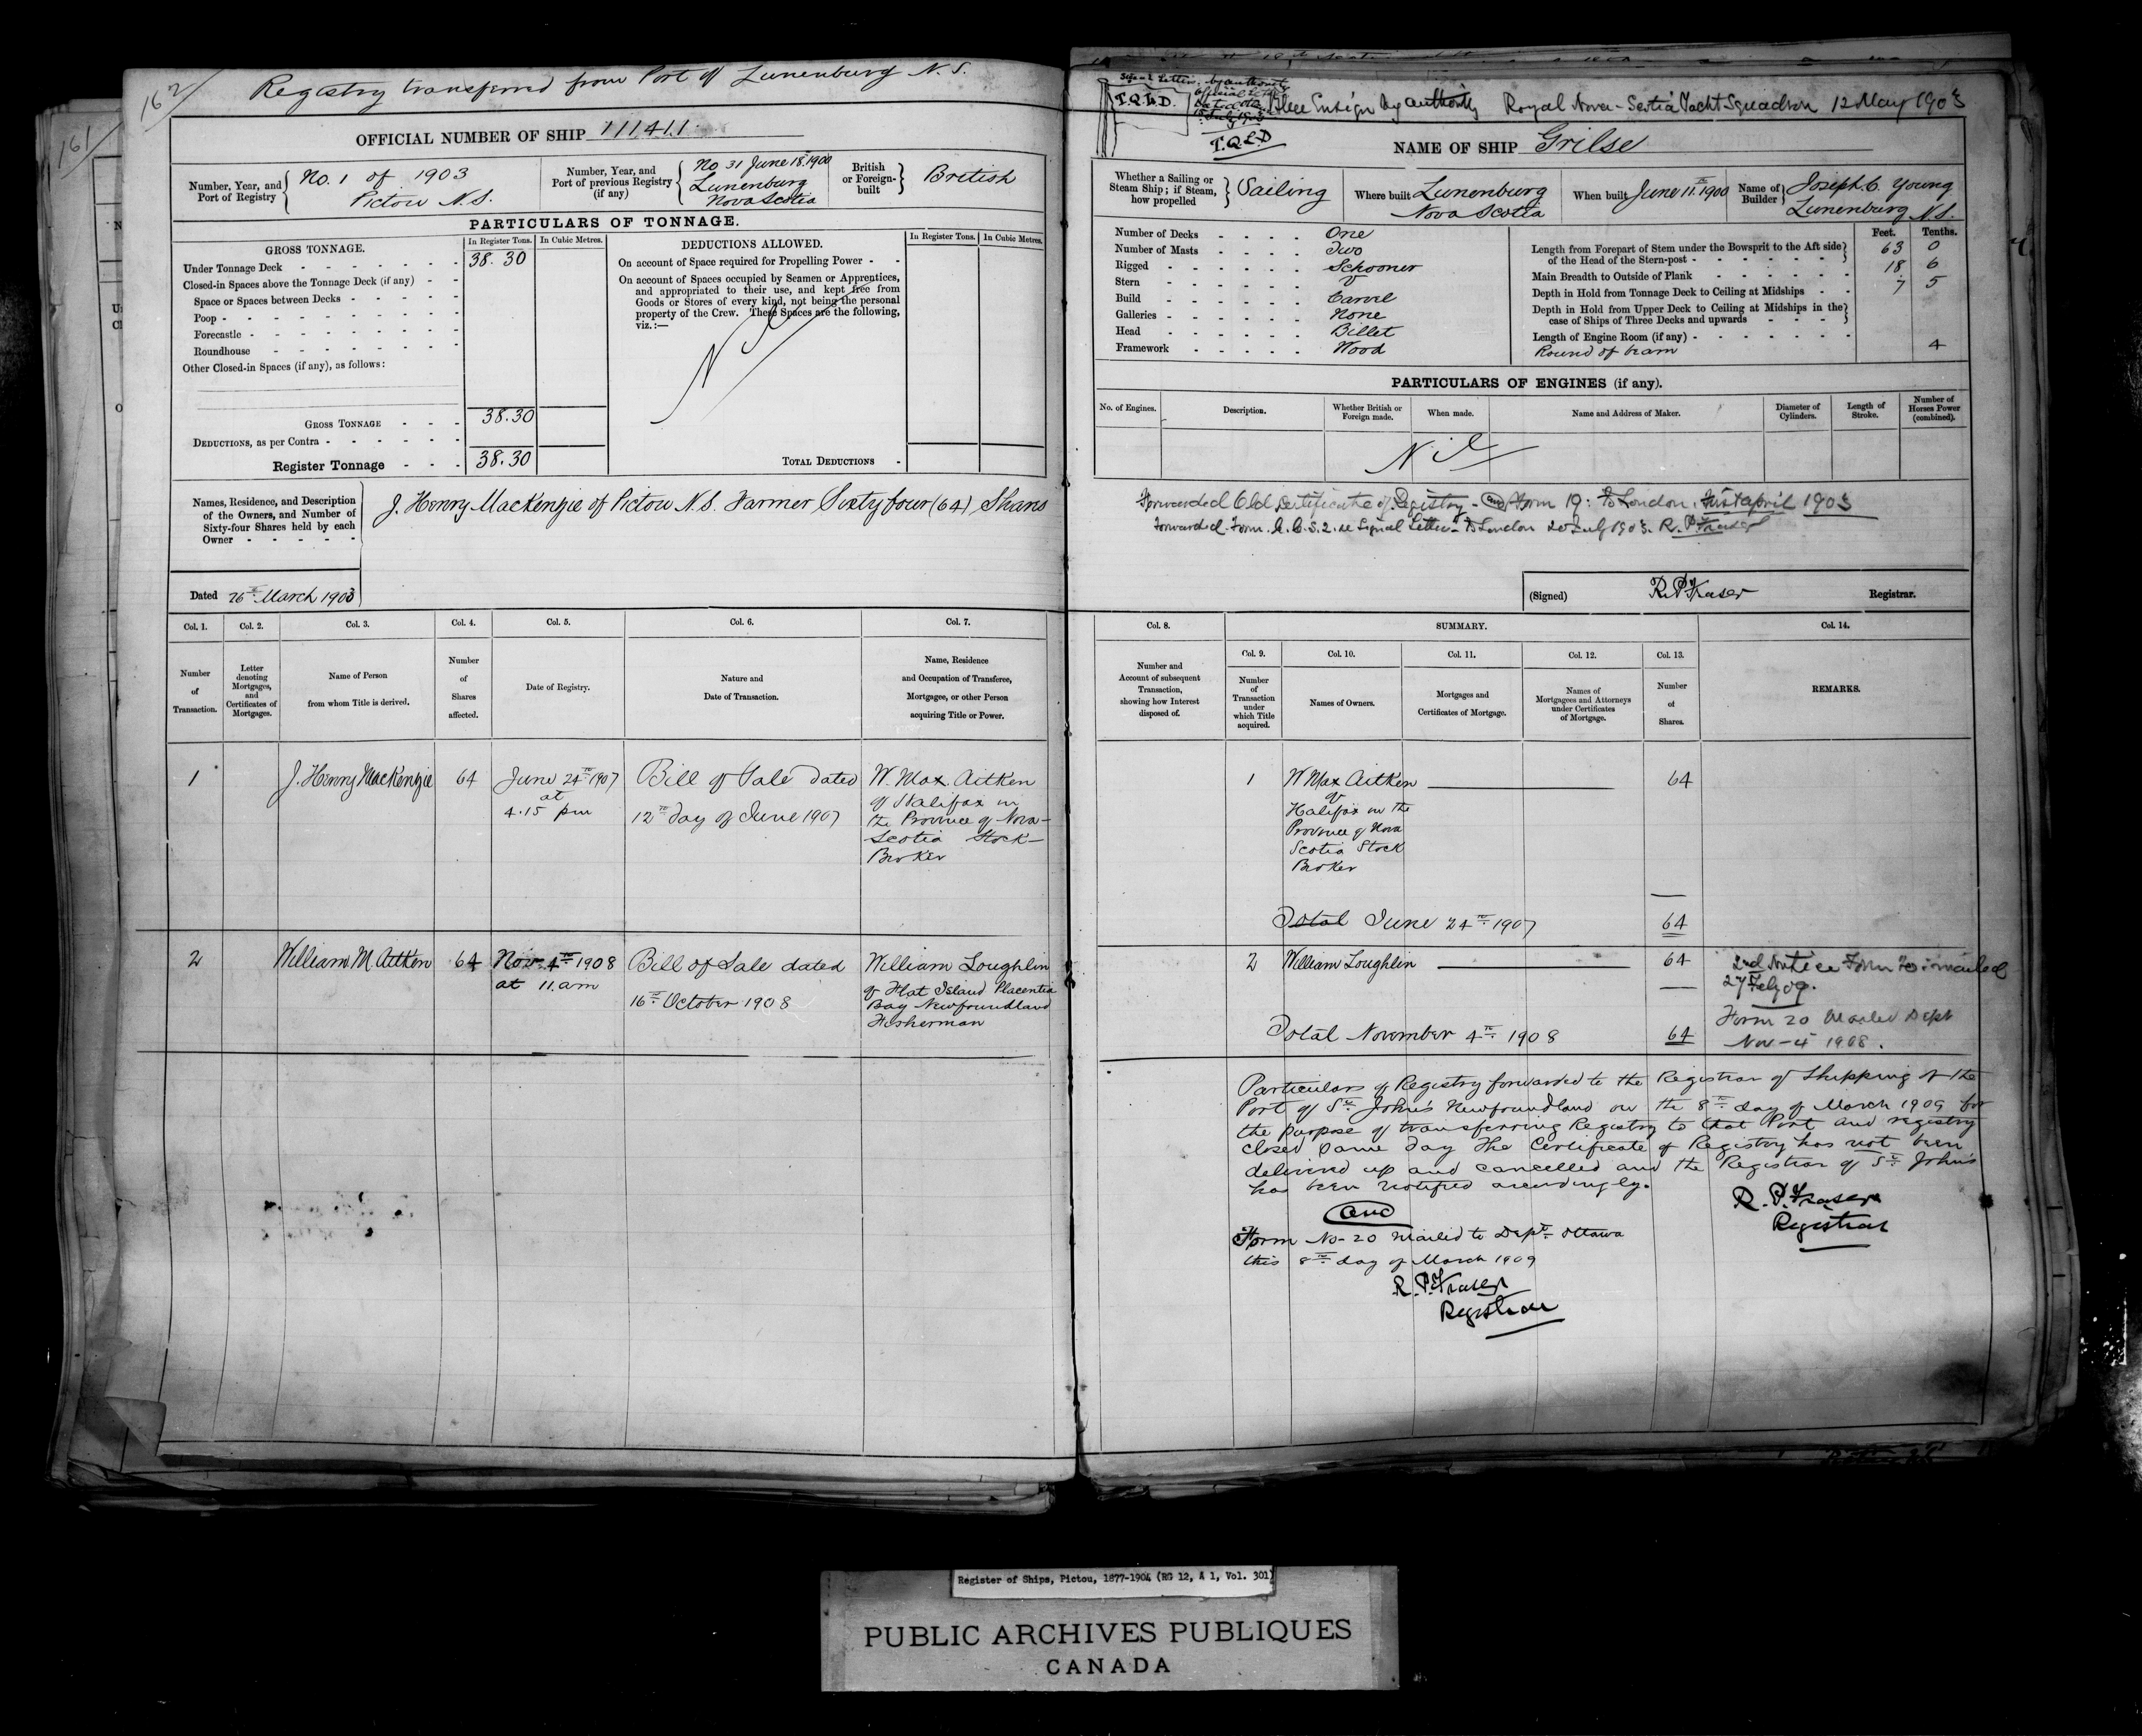 162
161
Registry transferred from Port of Lunenburg N. S.
OFFICIAL NUMBER OF SHIP 111411
Number, Year, and Port of Registry
No. 1 of 1903
Pictou N.S.
Number, Year, and Port of previous Registry (if any)
No 31 June 18. 1900
Lunenburg
Nova Scotia
British or Foreign-built
British
PARTICULARS OF TONNAGE.
GROSS TONNAGE.
In Register Tons.
In Cubic Metres.
Under Tonnage Deck - 38.30
Closed-in Spaces above the Tonnage Deck (if any) -
Space or Spaces between Decks -
Poop -
Forecastle -
Roundhouse -
Other Closed-in Spaces (if any), as follows:
GROSS TONNAGE - 38.30
DEDUCTIONS, as per Contra -
Register Tonnage - 38.30
DEDUCTIONS ALLOWED.
In Register Tons.
In Cubic Metres.
On account of Space required for Propelling Power -
On account of Spaces occupied by Seamen or Apprentices,
and appropriated to their use, and kept free from
Goods or Stores of every kind, not being the personal
property of the Crew. These Spaces are the following,
viz.:—
Nil
TOTAL DEDUCTIONS -
Names, Residence, and Description
of the Owners, and Number of
Sixty-four Shares held by each
Owner -
J. Henry MacKenzie of Pictou N.S. Farmer Sixty four (64) Shares
Dated 26th March 1903
Col. 1.
Number of Transaction.
Col. 2.
Letter denoting Mortgages, and Certificates of Mortgages.
Col. 3.
Name of Person from whom Title is derived.
Col. 4.
Number of Shares affected.
Col. 5.
Date of Registry.
Col. 6.
Nature and Date of Transaction.
Col. 7.
Name, Residence and Occupation of Transferee, Mortgagee, or other Person acquiring Title or Power.
1
J. Henry MacKenzie
64
June 24th 1907
at
4.15 pm
Bill of Sale dated
12th day of June 1907
W. Max Aitken
of Halifax in
the Province of Nova-
Scotia Stock-
Broker
2
William M. Aitken
64
Nov. 4th 1908
at 11. am
Bill of Sale dated
16th October 1908
William Loughlin
of Flat Island Placentia
Bay Newfoundland
Fisherman
T.Q.L.D.
Blue Ensign by authority Royal Nova-Scotia Yacht Squadron 12 May 1903
T.Q.L.D
NAME OF SHIP Grilse
Whether a Sailing or Steam Ship; if Steam, how propelled
Sailing
Where built
Lunenburg
Nova Scotia
When built
June 11th 1900
Name of Builder
Joseph C. Young
Lunenburg N.S.
Number of Decks - One
Number of Masts - Two
Rigged - Schooner
Stern - V
Build - Carvel
Galleries - None
Head - Billet
Framework - Wood
Feet. Tenths.
Length from Forepart of Stem under the Bowsprit to the Aft side
of the Head of the Stern-post - 63 0
Main Breadth to Outside of Plank - 18 6
Depth in Hold from Tonnage Deck to Ceiling at Midships - 7 5
Depth in Hold from Upper Deck to Ceiling at Midships in the
case of Ships of Three Decks and upwards -
Length of Engine Room (if any) -
Round of beam 4
PARTICULARS OF ENGINES (if any).
No. of Engines.
Description.
Whether British or Foreign made.
When made.
Name and Address of Maker.
Diameter of Cylinders.
Length of Stroke.
Number of Horses Power (combined).
Nil
Forwarded Old Certificate of Registry - and Form 19: to London, first april 1903
Forwarded Form. re Signal Letters to London 20 July 1903. R. P. Fraser
(Signed) R. P. Fraser Registrar.
Col. 8.
Number and Account of subsequent Transaction, showing how Interest disposed of.
SUMMARY.
Col. 9.
Number of Transaction under which Title acquired.
Col. 10.
Names of Owners.
Col. 11.
Mortgages and Certificates of Mortgage.
Col. 12.
Names of Mortgagees and Attorneys under Certificates of Mortgage.
Col. 13.
Number of Shares.
Col. 14.
REMARKS.
1
W Max Aitken
of
Halifax in the
Province of Nova
Scotia Stock
Broker
64
Total June 24th 1907 64
2
William Loughlin
64
2nd Notice Form mailed
27 Feby 09.
Form 20 Mailed Dept
Nov - 4 1908.
Total November 4th 1908 64
Particulars of Registry forwarded to the Registrar of Shipping of the
Port of St. John's Newfoundland on the 8th day of March 1909 for
the purpose of transferring Registry to that Port and registry
closed same day The Certificate of Registry has not been
delivered up and cancelled and the Registrar of St. John's
has been notified accordingly.
R. P. Fraser
Registrar
and
Form No- 20 mailed to Dept Ottawa
this 8th day of March 1909
R. P. Fraser
Registrar
Register of Ships, Pictou, 1877-1904 (RG 12, A 1, Vol. 301)
PUBLIC ARCHIVES PUBLIQUES
CANADA